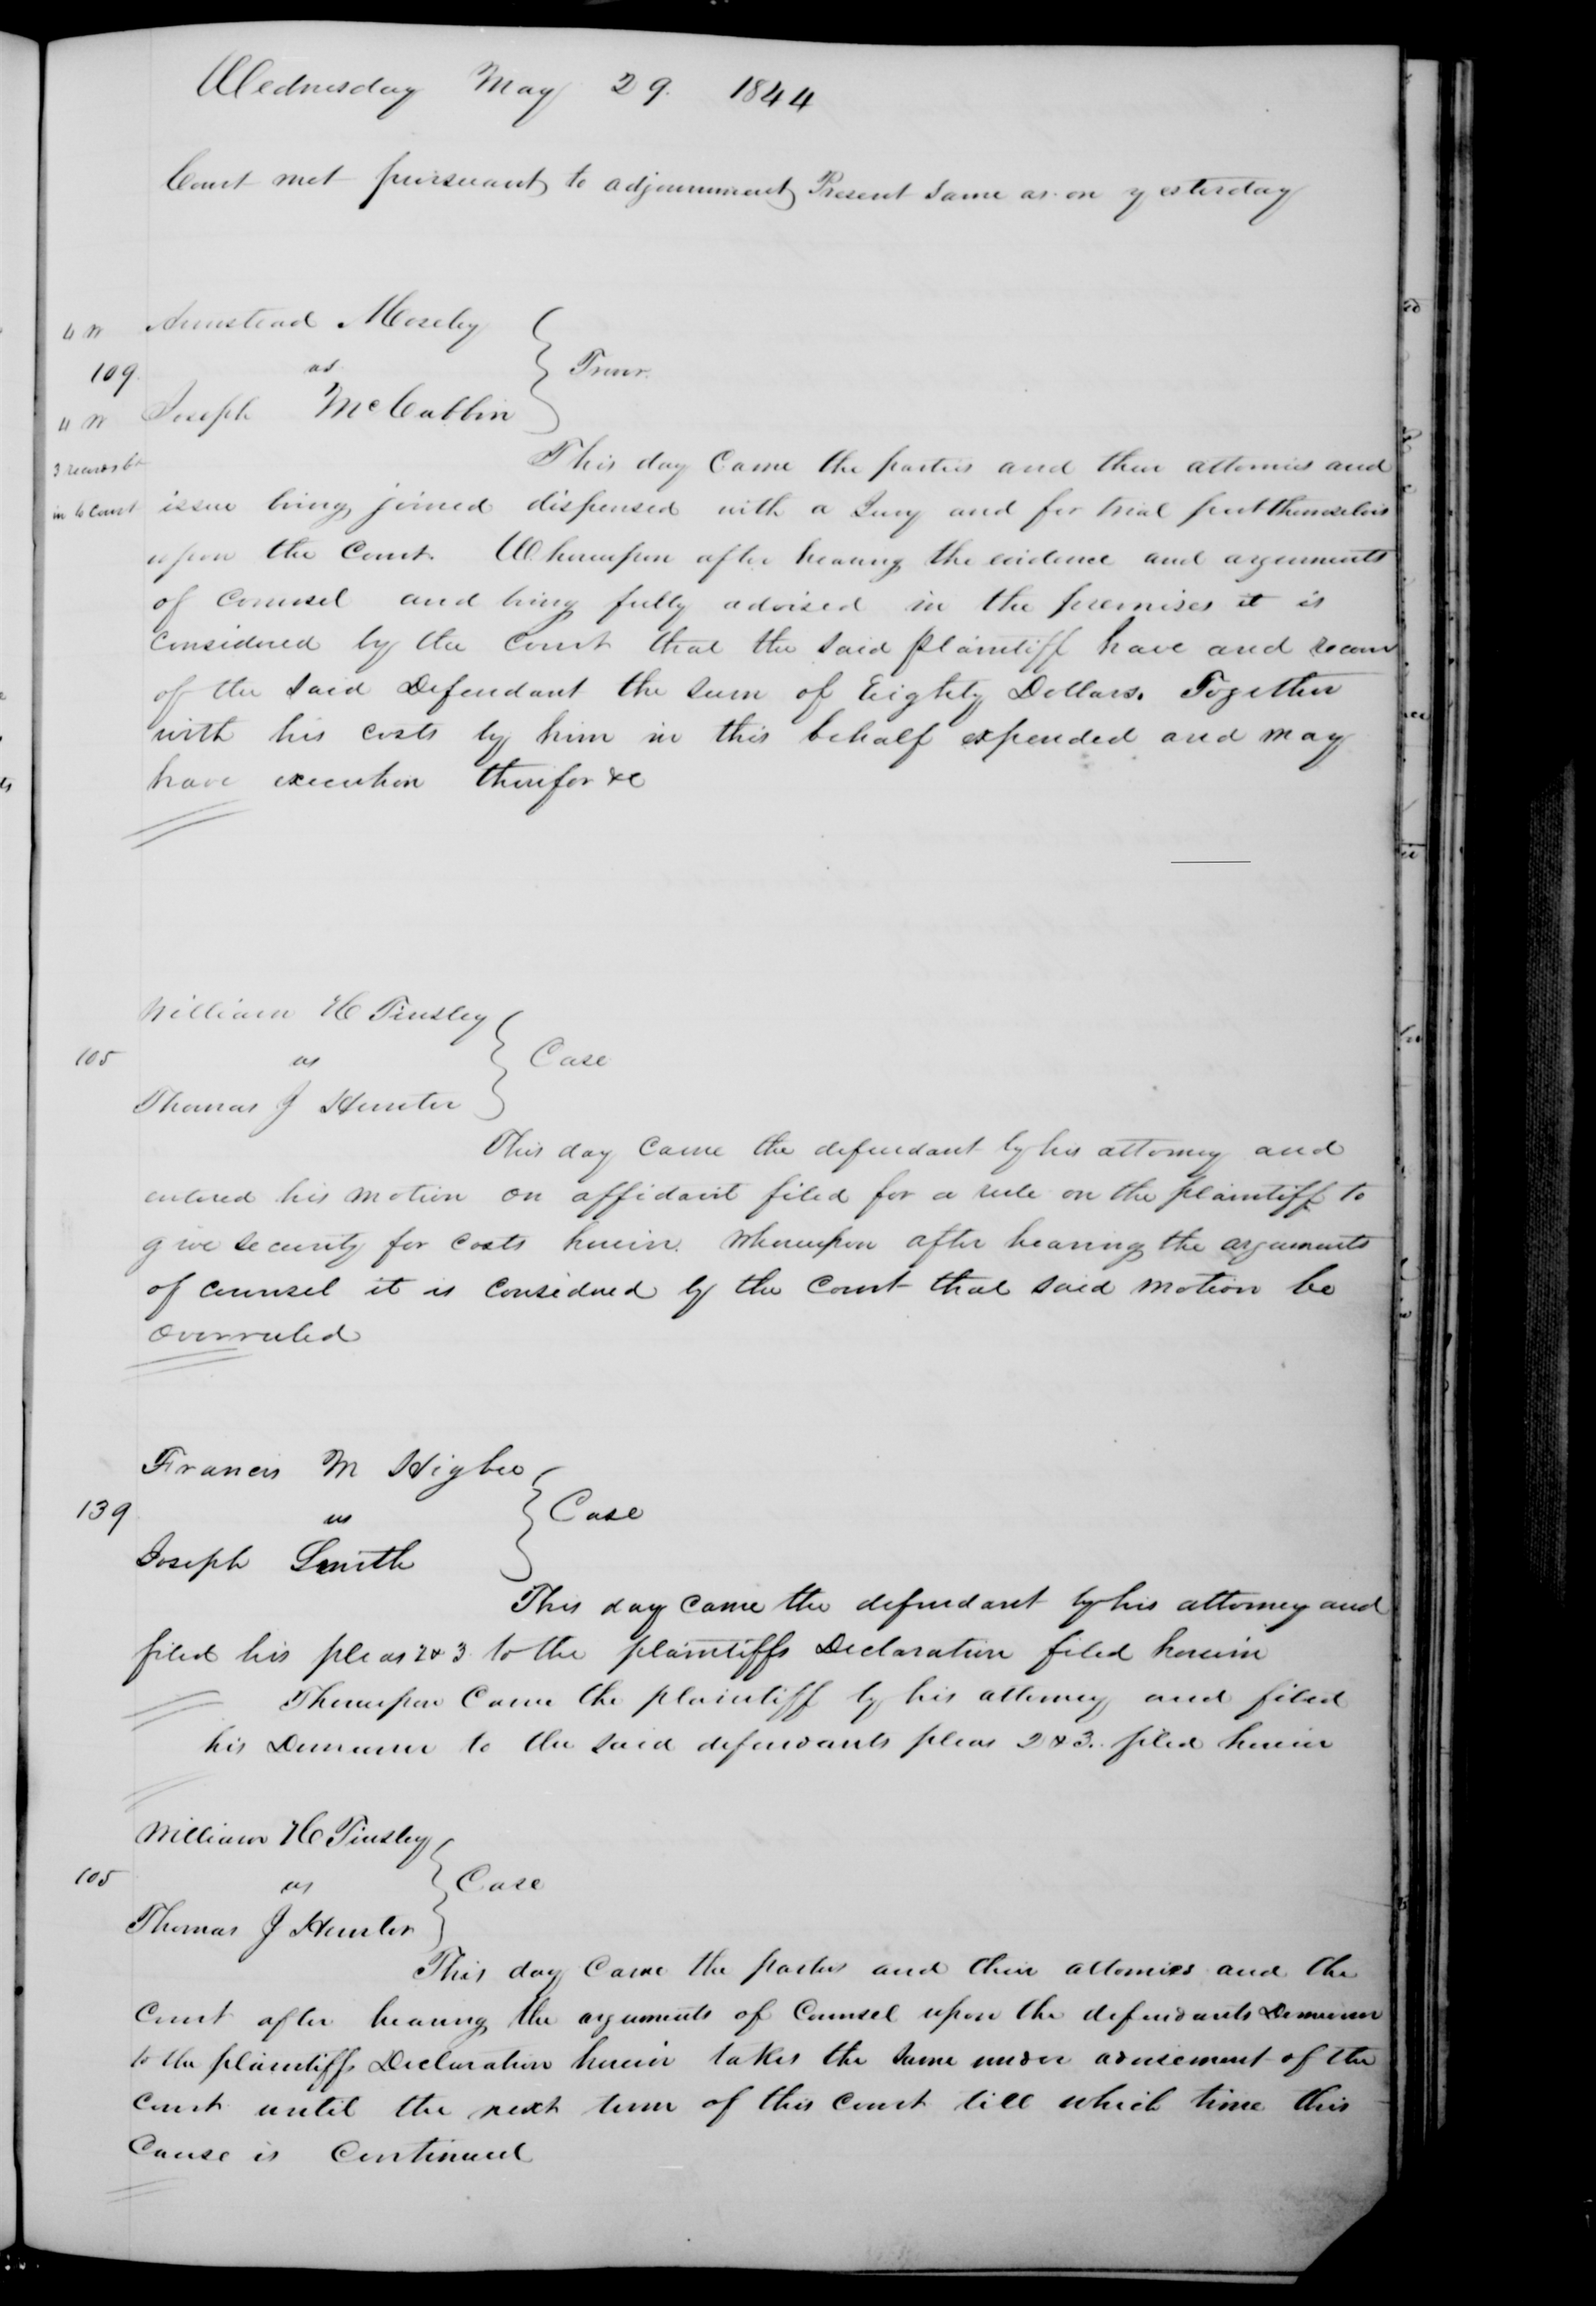 Wednesday May 29. 1844
Court met pursuant to adjournment Present same as on yesterday
Armstead Moseley
109. vs
Joseph McCubbin
This day came the parties and their attornies and
issue being joined dispensed with a Jury and for trial put themselves
upon the Court. Whereupon after hearing the evidence and arguments
of counsel and being fully advised in the premises it is
considered by the court that the said plaintiff have and recover
of the said Defendant the sum of Eighty Dollars. Together
with his costs by him in this behalf expended and may
have execution therefor &c
William H Tinsley
105 vs Case
Thomas J Hunter
This day came the defendant by his attorney and
entered his motion on affidavit filed for a rule on the plaintiff to
give security for costs herein. Whereupon after hearing the arguments
of counsel it is considered by the court that said motion be
overruled
Francis M Higbee
139 vs Case
Joseph Smith
This day came the defendant by his attorney and
filed his pleas 2 & 3 to the plaintiffs Declaration filed herein
Thereupon came the plaintiff by his attorney and filed
his Demurrer to the said defendants pleas 2 & 3. filed herein
William H Tinsley
105 vs Case
Thomas J Hunter
This day came the parties and their attornies and the
Court after hearing the arguments of Counsel upon the defendants Demurrer
to the plaintiffs Declaration herein takes the same under advisement of the
court until the next term of this court till which time this
Cause is Continued